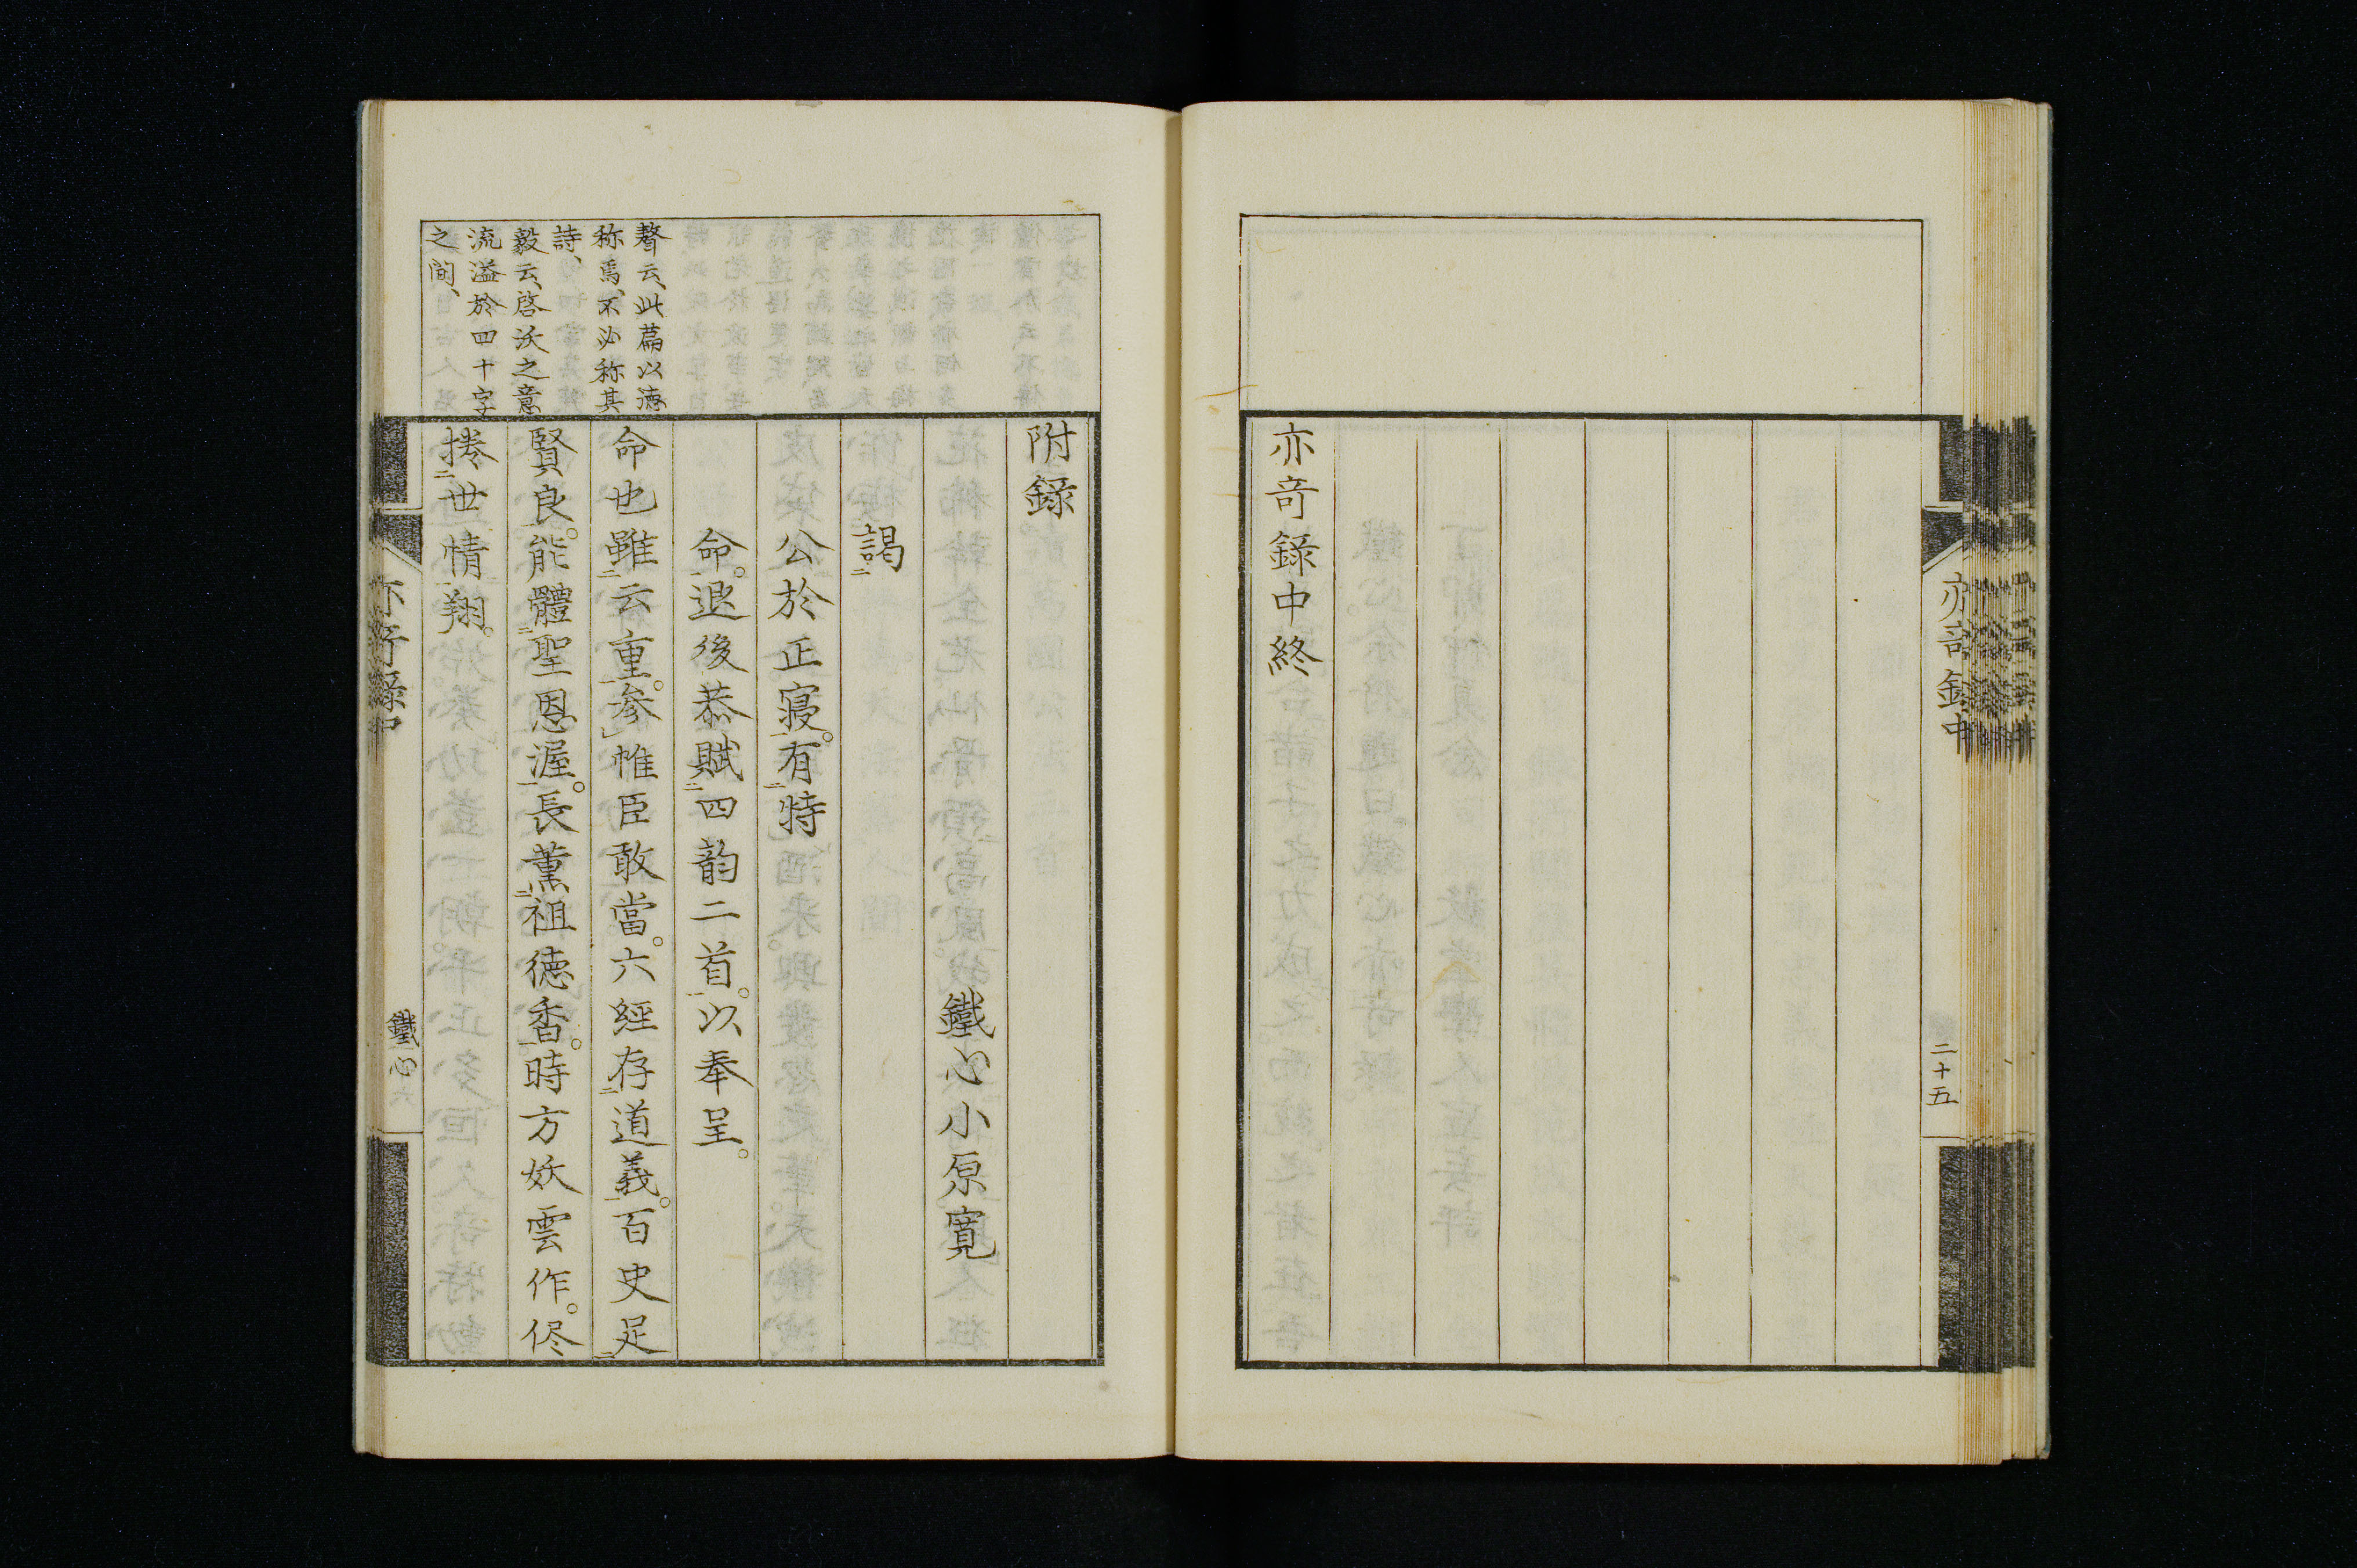 亦奇録中
二十五
亦奇録中終
附録
鐵心小原寛
謁
公於正寝。有特
命。退後恭賦四韵二首。以奉呈。
命也雖云重。参帷臣敢當。六經存道義。百史足
賢良。能體聖恩渥。長薫祖徳香。時方妖雲作。侭
捲世情翔。
聱云、此篇以德
称焉、不必称其
詩、
毅云、啓沃之意
流溢於四十字
之間、
鐵心